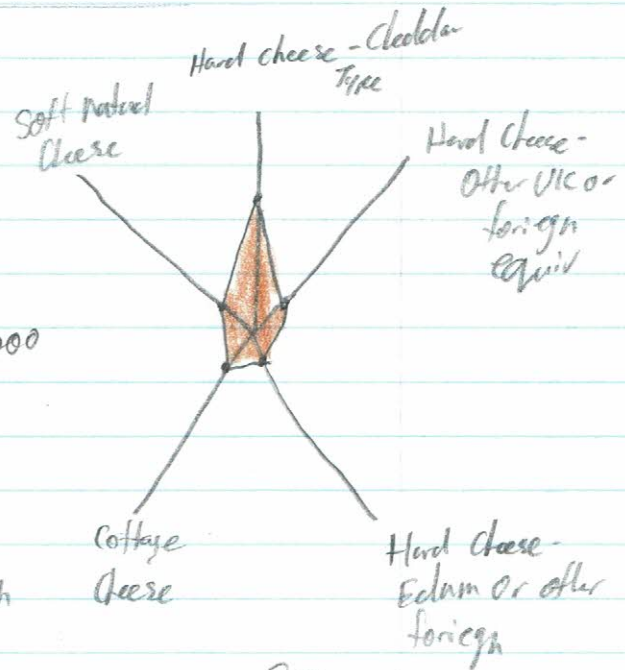 Hard Cheese - Cheddar
Type
Soft natural
Cheese
Hard Cheese -
Other UK or
foriegn
equiv
000
Cottage
Cheese
Hard Cheese -
Edam or other
foriegn
h